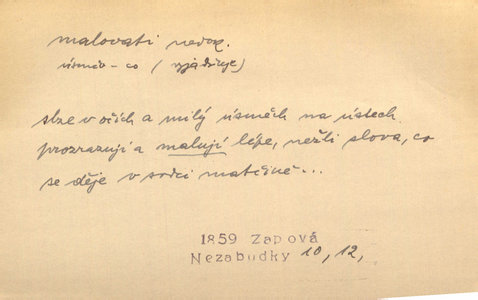 malovati nedok.
úsměv – co (vyjadřuje)
slze v očích a milý úsměch na ústech
prozrazují a malují lépe, nežli slova, co
se děje v srdci matčině...
1859 Zapová
Nezabudky 10, 12,